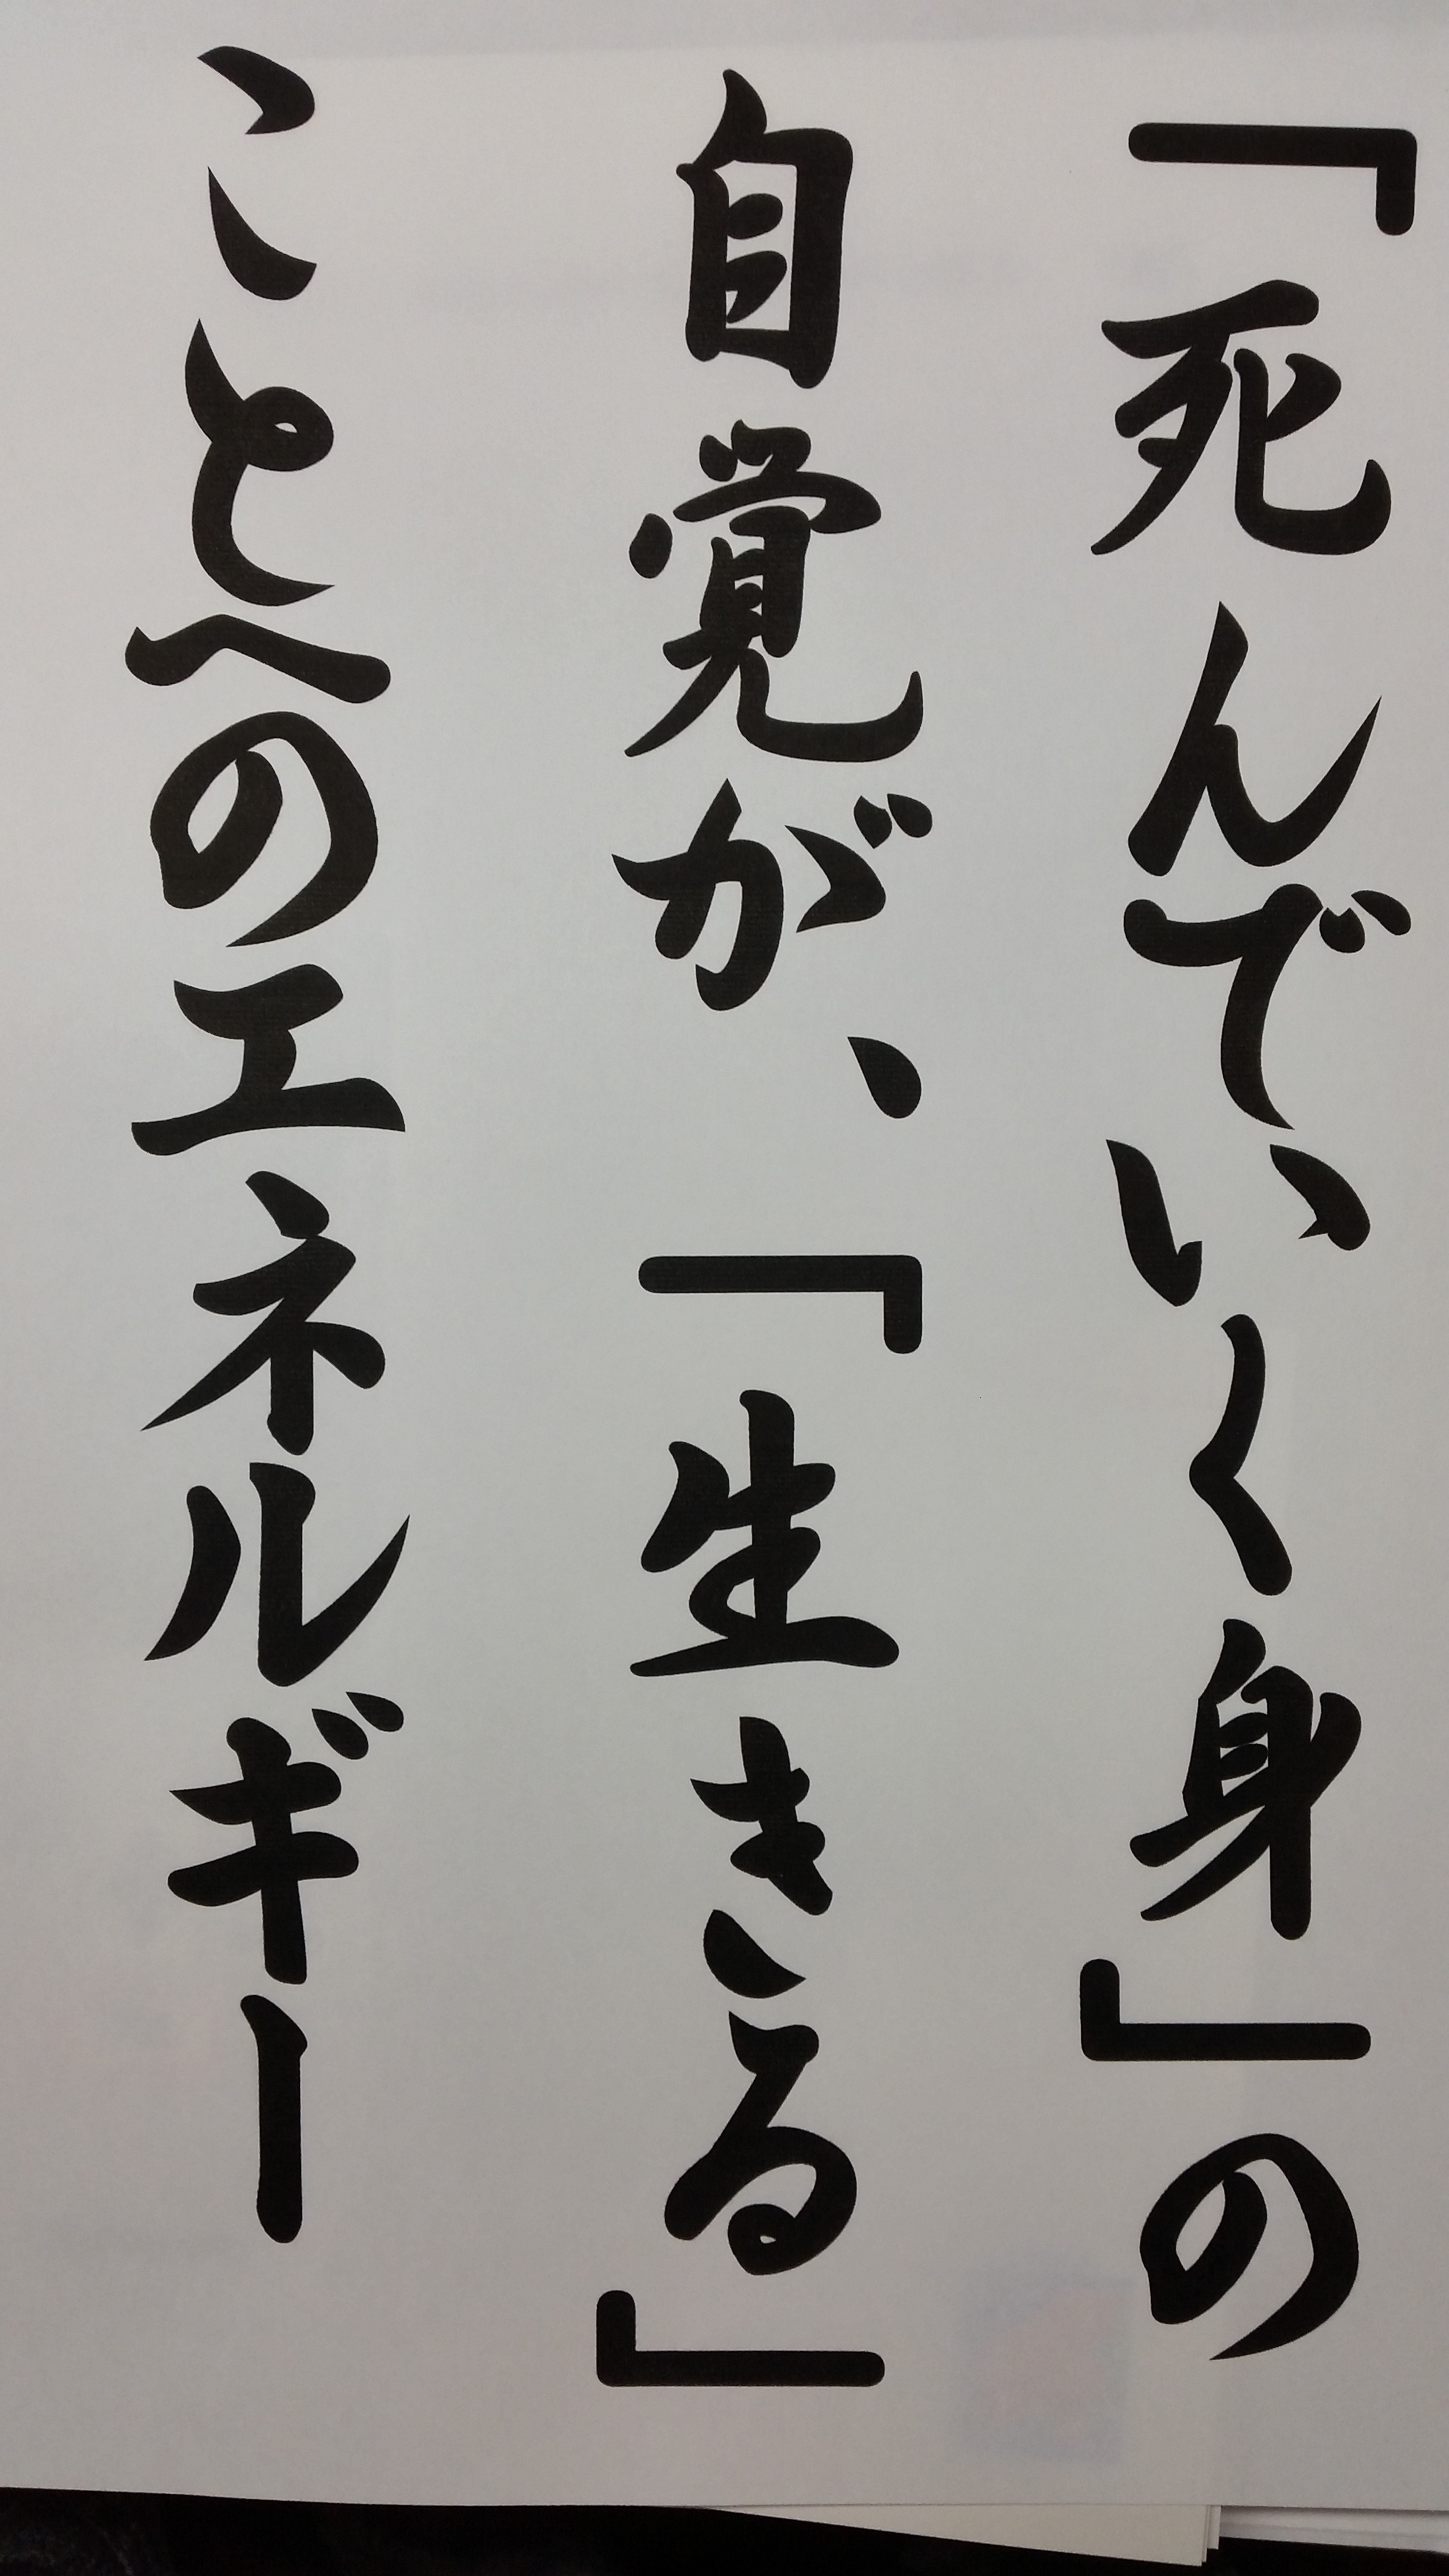 「死んでいく身」の
自覚が、「生きる」
ことへのエネルギー